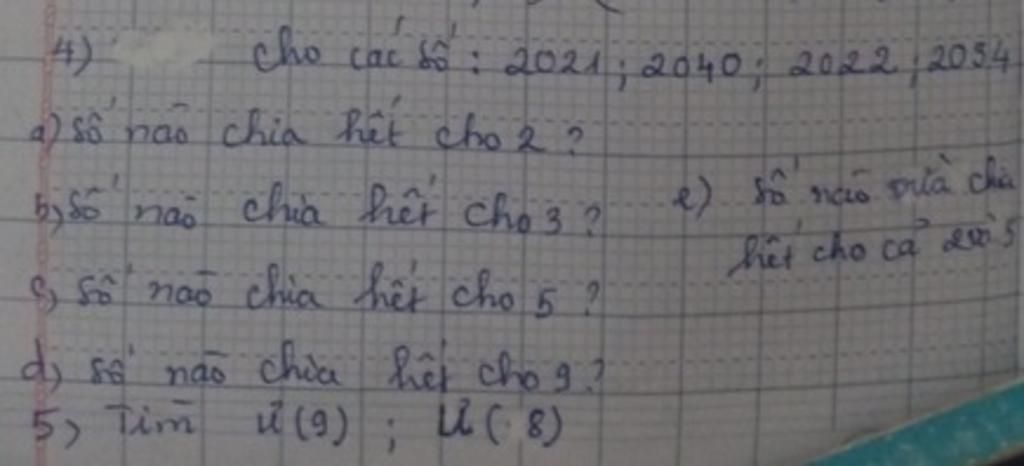 4) Cho các số : 2021 ; 2040 ; 2022 ; 2034
a) Số nào chia hết cho 2 ?
b, Số nào chia hết cho 3 ?
c, Số nào chia hết cho 5 ?
d, Số nào chia hết cho 9 ?
e) Số nào vừa chia
hết cho cả 2 và 5
5, Tìm Ư(9) ; Ư(8)